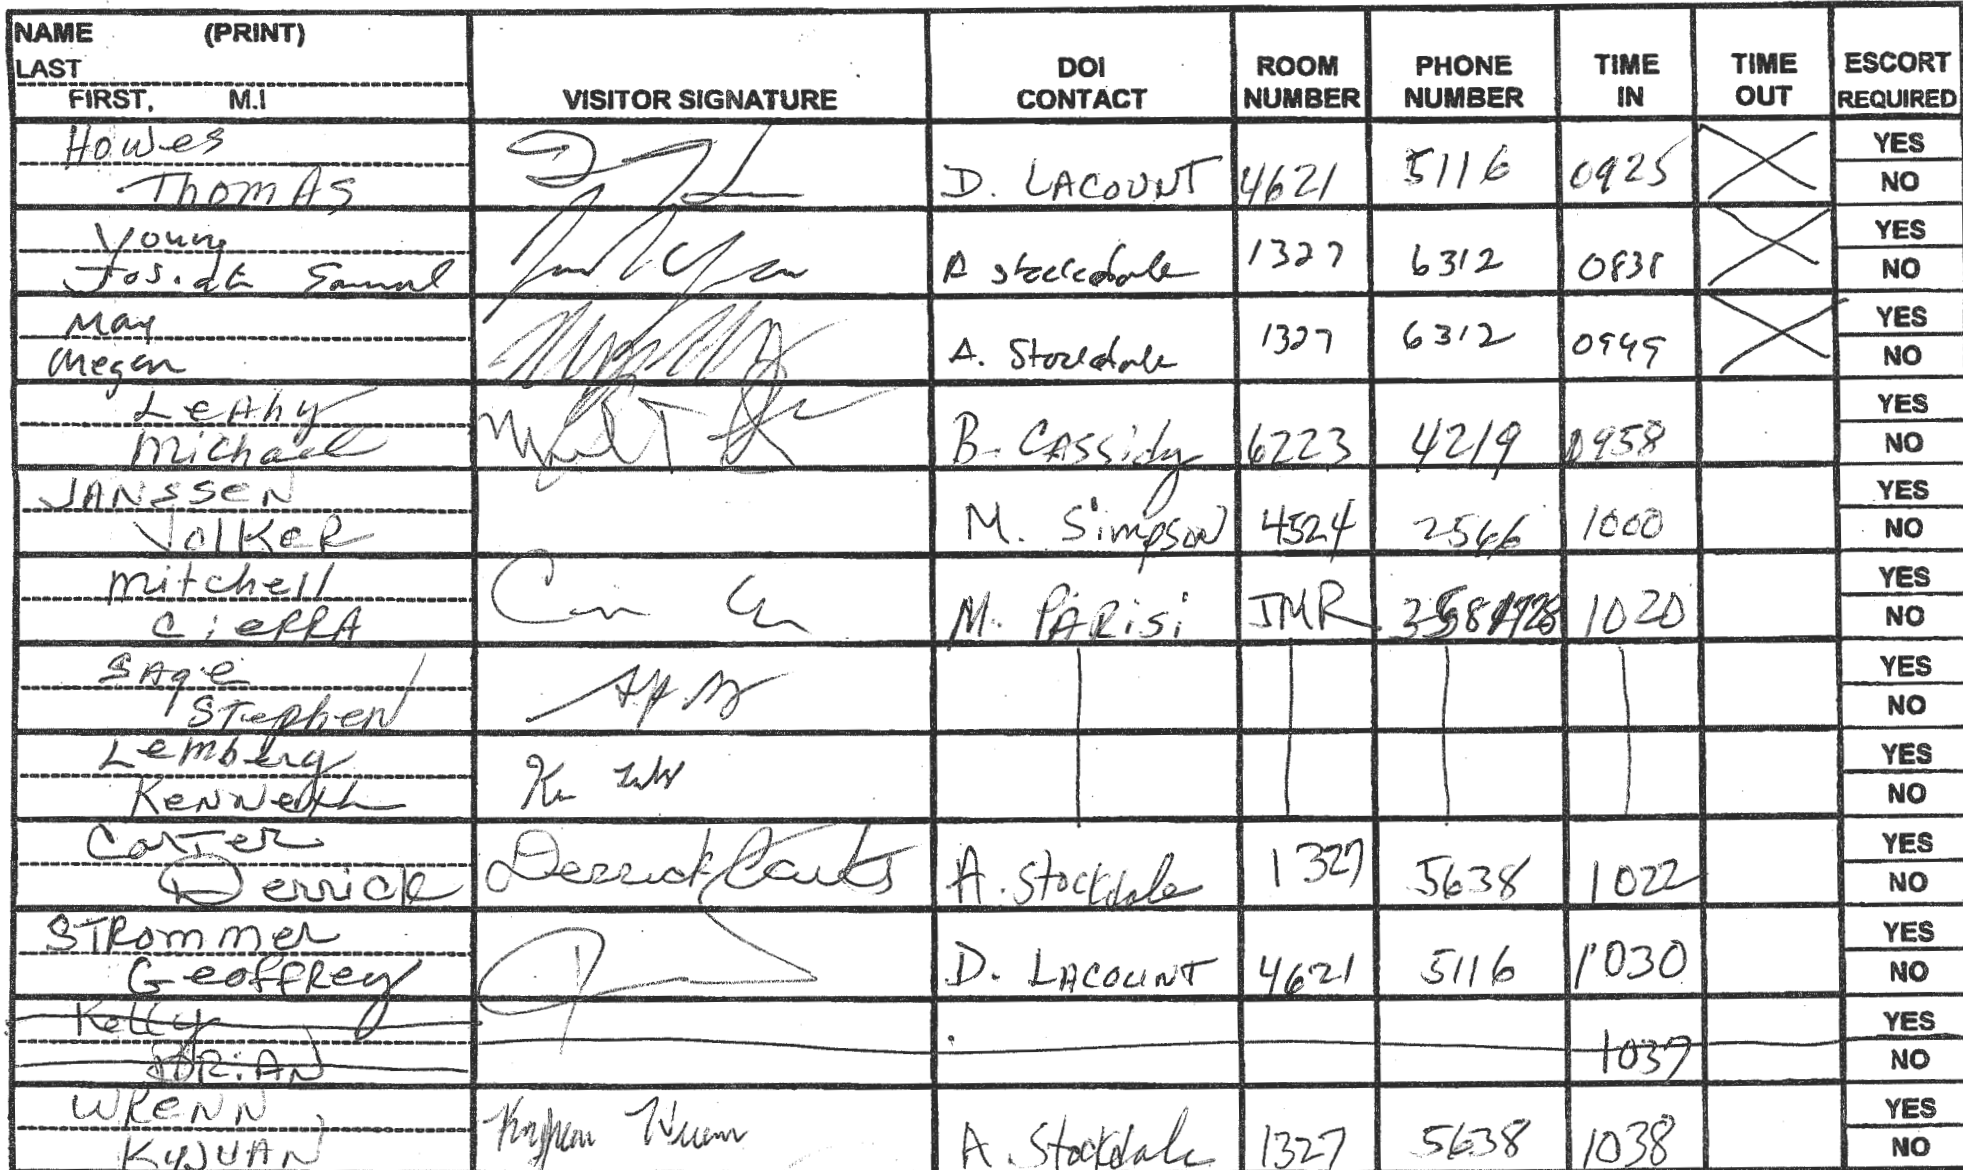 NAME (PRINT)
LAST
FIRST, M.I
VISITOR SIGNATURE
DOI CONTACT
ROOM NUMBER
PHONE NUMBER
TIME IN
TIME OUT
ESCORT REQUIRED
Howes
Thomas
D. LACOUNT 4621 5116 0925 YES NO
Young
Josiah Samuel
A Stockdale 1327 6312 0838 YES NO
May
Megan
A. Stockdale 1327 6312 0949 YES NO
Leahy
Michael
B. Cassidy 6223 4219 0958 YES NO
JANSSEN
VolKeR
M. Simpson 4524 2566 1000 YES NO
Mitchell
CieRRA
M. PARisi JMR 1020 YES NO
SAge
Stephen
YES NO
Lemberg
KenNeth
YES NO
Carter
Derrick
Derrick Carter A. Stockdale 1327 5638 1022 YES NO
STRommer
GeoffRey
D. LACOUNT 4621 5116 1030 YES NO
Kelly
1037 YES NO
WReNN
KyJUAN
A. Stockdale 1327 5638 1038 YES NO